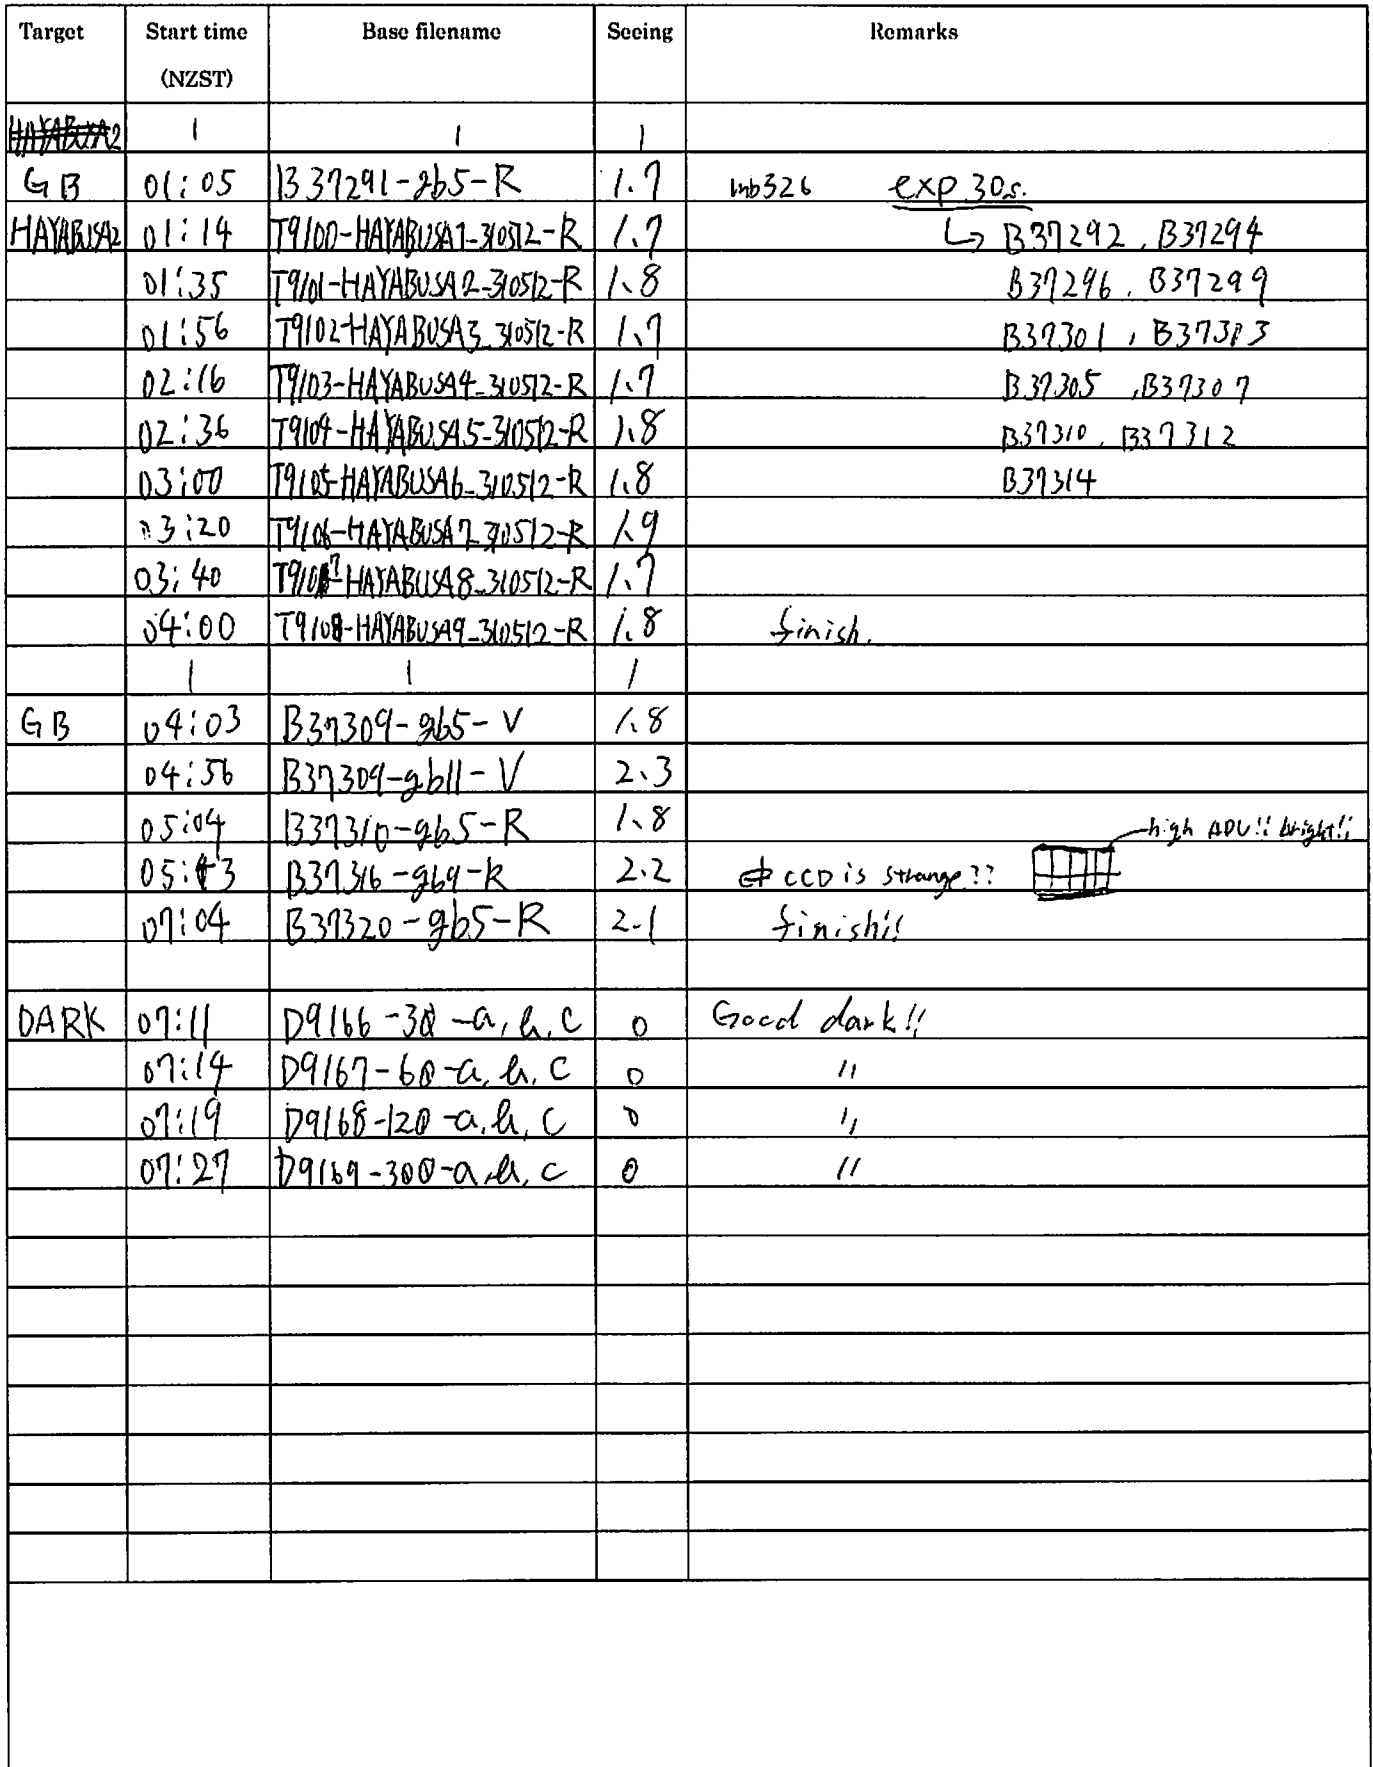 Target Start time (NZST) Base filename Seeing Remarks
HAYABUSA2 | | |
GB 01:05 B37291-gb5-R 1.7 exp 30s.
HAYABUSA2 01:14 T9100-HAYABUSA1-310512-R 1.7 ↳ B37292, B37294
01:35 T9101-HAYABUSA2-310512-R 1.8 B37296, B37299
01:56 T9102-HAYABUSA3-310512-R 1.7 B37301, B37303
02:16 T9103-HAYABUSA4-310512-R 1.7 B37305, B37307
02:36 T9104-HAYABUSA5-310512-R 1.8 B37310, B37312
03:00 T9105-HAYABUSA6-310512-R 1.8 B37314
03:20 T9106-HAYABUSA7-310512-R 1.9
03:40 T9107-HAYABUSA8-310512-R 1.7
04:00 T9108-HAYABUSA9-310512-R 1.8 finish.
| | |
GB 04:03 B37309-gb5-V 1.8
04:56 B37309-gb11-V 2.3
05:04 B37310-gb5-R 1.8 high ADU!! bright!!
05:13 B37316-gb9-R 2.2 CCD is strange??
07:04 B37320-gb5-R 2.1 finish!!
DARK 07:11 D9166-30-a, b, c 0 Good dark!!
07:14 D9167-60-a, b, c 0 〃
07:19 D9168-120-a, b, c 0 〃
07:27 D9169-300-a, b, c 0 〃